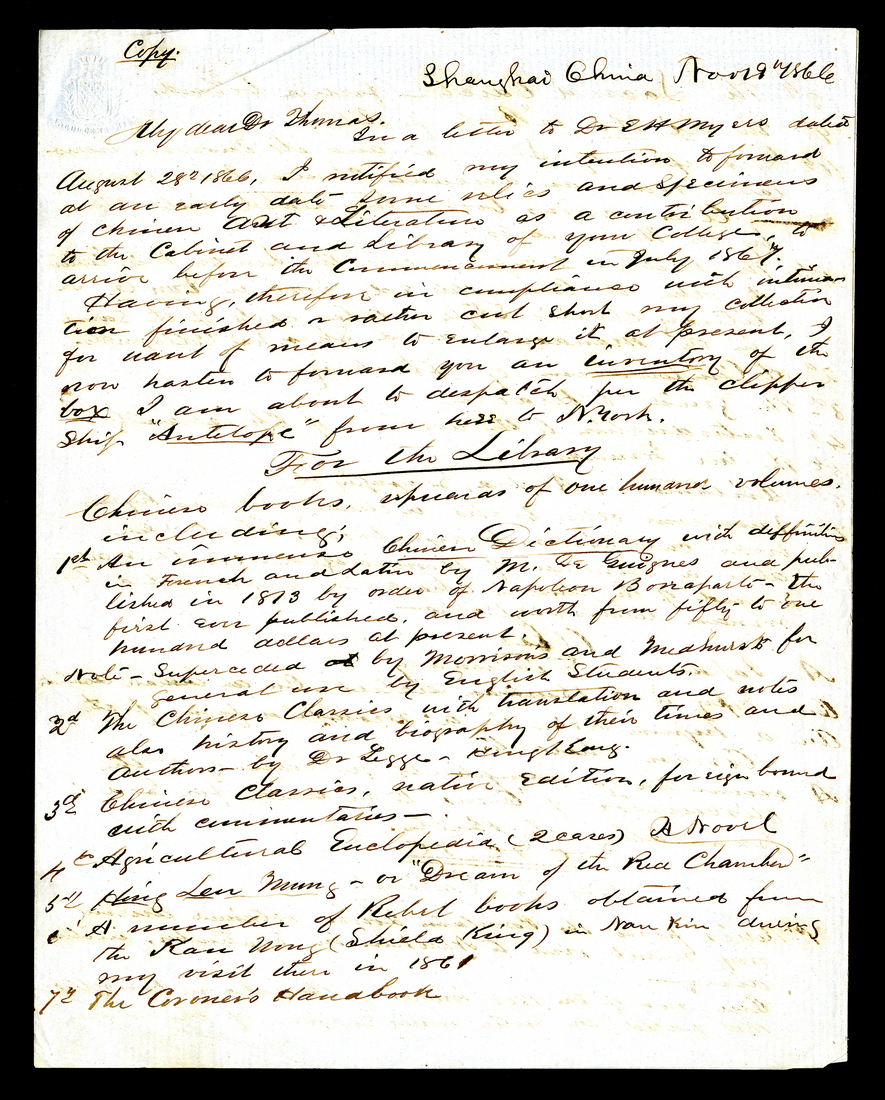 Copy.
Shanghai China Nov 19th 1866
My dear Dr Thomas.
In a letter to Dr E H Myers dated
August 28th 1866, I notified my intention to forward
at an early date some relics and specimens
of Chinese Art & Literature as a contribution
to the Cabinet and Library of your College, to
arrive before the Commencement in July 1867.
Having, therefore in compliance with inten-
tion finished or rather cut short my collection
for want of means to enlarge it at present, I
now hasten to forward you an inventory of the
box I am about to despatch per the clipper
ship "Antelope" from here to N. York.
For the Library
Chinese books, upwards of one hundred volumes.
including;
1st An immense Chinese Dictionary with diffinitions
in French and Latin by M. De Guignes and pub-
lished in 1813 by order of Napoleon Bonaparte - the
first ever published, and worth from fifty to one
hundred dollars at present.
Note - Superceded by Morrison's and Medhurst's for
general use by English Students.
2d The Chinese Classics with translation and notes
also history and biography of their times and
Authors - by Dr Legge - Hong Kong.
3d Chinese Classics, native Edition, foreign bound
with commentaries -
4th Agricultural Enclopedia (2 cases) A Novel
5th Hung Leu Mung - or "Dream of the Red Chamber"
6th A number of Rebel books obtained from
the Kan Wong (Shield King) in Nan Kin during
my visit there in 1861
7th The Coroner's Handbook